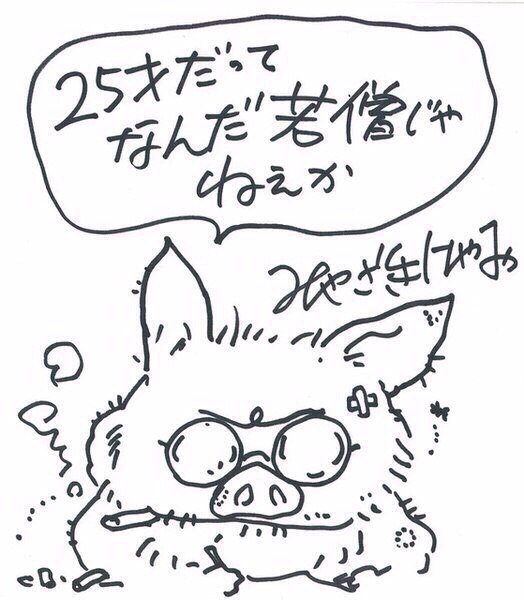 25才だって
なんだ若僧じゃ
ねえか
みやざきはやお